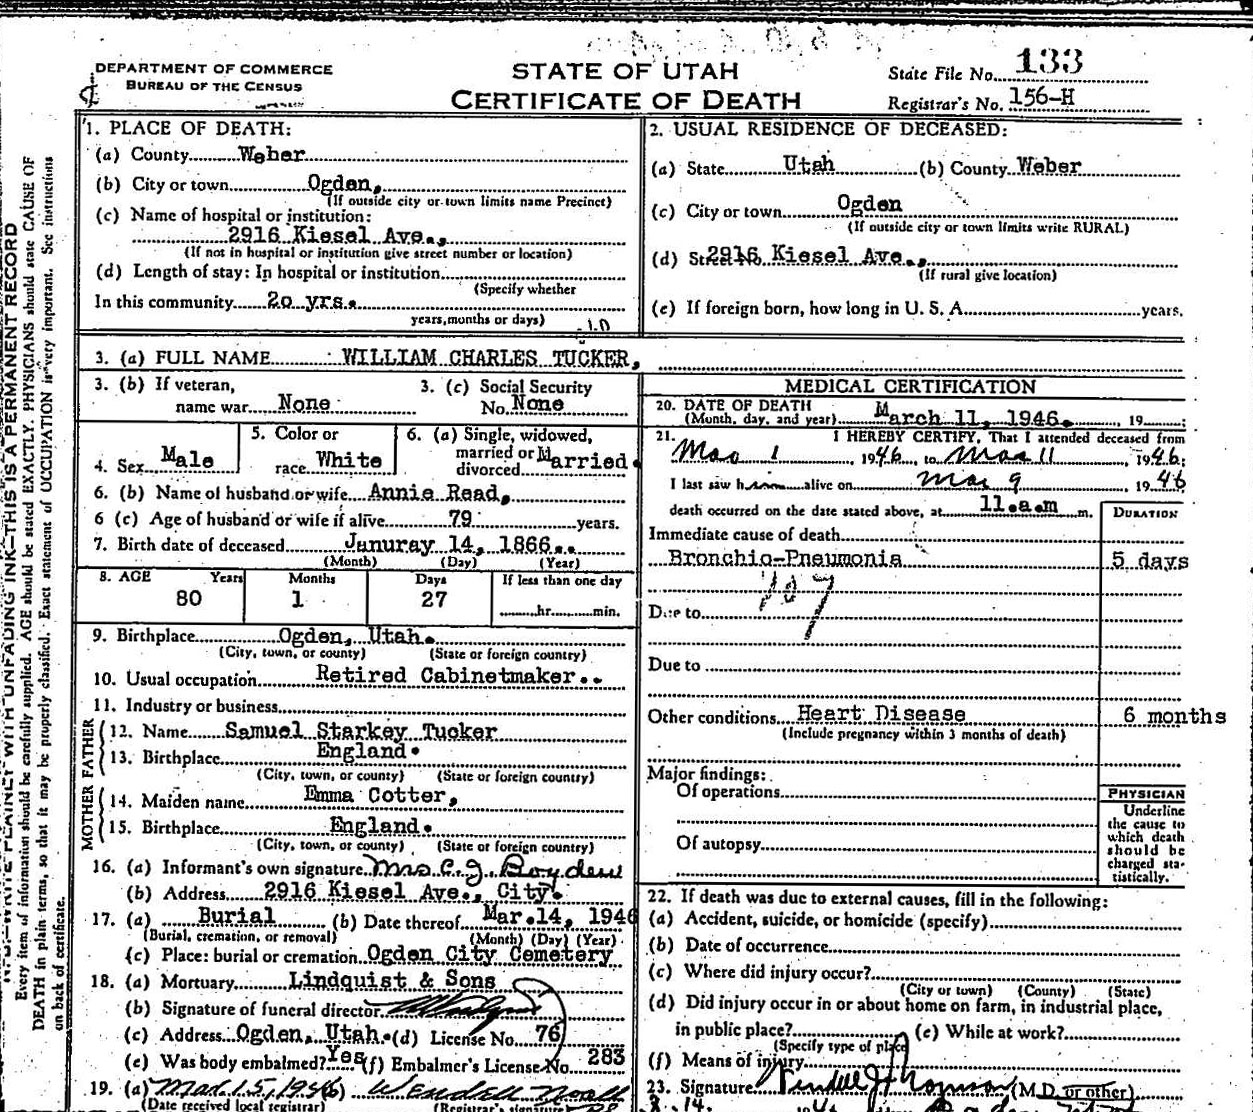 DEPARTMENT OF COMMERCE
BUREAU OF THE CENSUS
STATE OF UTAH
CERTIFICATE OF DEATH
State File No. 133
Registrar's No. 156-H
1. PLACE OF DEATH:
(a) County Weber
(b) City or town Ogden,
(If outside city or town limits name Precinct)
(c) Name of hospital or institution:
2916 Kiesel Ave.,
(If not in hospital or institution give street number or location)
(d) Length of stay: In hospital or institution
(Specify whether
In this community 2o yrs.
years, months or days)
2. USUAL RESIDENCE OF DECEASED:
(a) State Utah (b) County Weber
(c) City or town Ogden
(If outside city or town limits write RURAL)
(d) Street No. 2916 Kiesel Ave.,
(If rural give location)
(e) If foreign born, how long in U. S. A. years.
3. (a) FULL NAME WILLIAM CHARLES TUCKER,
3. (b) If veteran, name war None
3. (c) Social Security No. None
4. Sex Male
5. Color or race White
6. (a) Single, widowed, married or divorced Married.
6. (b) Name of husband or wife Annie Read,
6 (c) Age of husband or wife if alive 79 years.
7. Birth date of deceased Januray 14, 1866..
(Month) (Day) (Year)
8. AGE Years Months Days If less than one day
80 1 27 hr. min.
9. Birthplace Ogden, Utah.
(City, town, or county) (State or foreign country)
10. Usual occupation Retired Cabinetmaker..
11. Industry or business
FATHER
12. Name Samuel Starkey Tucker
13. Birthplace England.
(City, town, or county) (State or foreign country)
MOTHER
14. Maiden name Emma Cotter,
15. Birthplace England.
(City, town, or county) (State or foreign country)
16. (a) Informant's own signature Mrs C. J. Boyden
(b) Address 2916 Kiesel Ave., City.
17. (a) Burial (b) Date thereof Mar.14, 1946
(Burial, cremation, or removal) (Month) (Day) (Year)
(c) Place: burial or cremation Ogden City Cemetery
18. (a) Mortuary Lindquist & Sons
(b) Signature of funeral director
(c) Address Ogden, Utah. (d) License No. 76
(e) Was body embalmed? Yes (f) Embalmer's License No. 283
19. (a) Mar. 15, 1946) Wendell Noall
(Date received local registrar) (Registrar's signature)
MEDICAL CERTIFICATION
20. DATE OF DEATH
(Month, day, and year) March 11, 1946. 19
21. I HEREBY CERTIFY, That I attended deceased from
Mar 1, 1946, to Mar 11, 1946;
I last saw him alive on Mar 9 1946
death occurred on the date stated above, at 11.a.m m.
DURATION
Immediate cause of death
Bronchio-Pneumonia 5 days
107
Due to
Due to
Other conditions Heart Disease 6 months
(Include pregnancy within 3 months of death)
Major findings:
Of operations
Of autopsy
PHYSICIAN
Underline
the cause to
which death
should be
charged sta-
tistically.
22. If death was due to external causes, fill in the following:
(a) Accident, suicide, or homicide (specify)
(b) Date of occurrence
(c) Where did injury occur?
(City or town) (County) (State)
(d) Did injury occur in or about home on farm, in industrial place,
in public place? (e) While at work?
(Specify type of place
(f) Means of injury
23. Signature (M.D. or other)
WRITE PLAINLY WITH UNFADING INK—THIS IS A PERMANENT RECORD
Every item of information should be carefully supplied. AGE should be stated EXACTLY. PHYSICIANS should state CAUSE OF
DEATH in plain terms, so that it may be properly classified. Exact statement of OCCUPATION is very important. See instructions
on back of certificate.